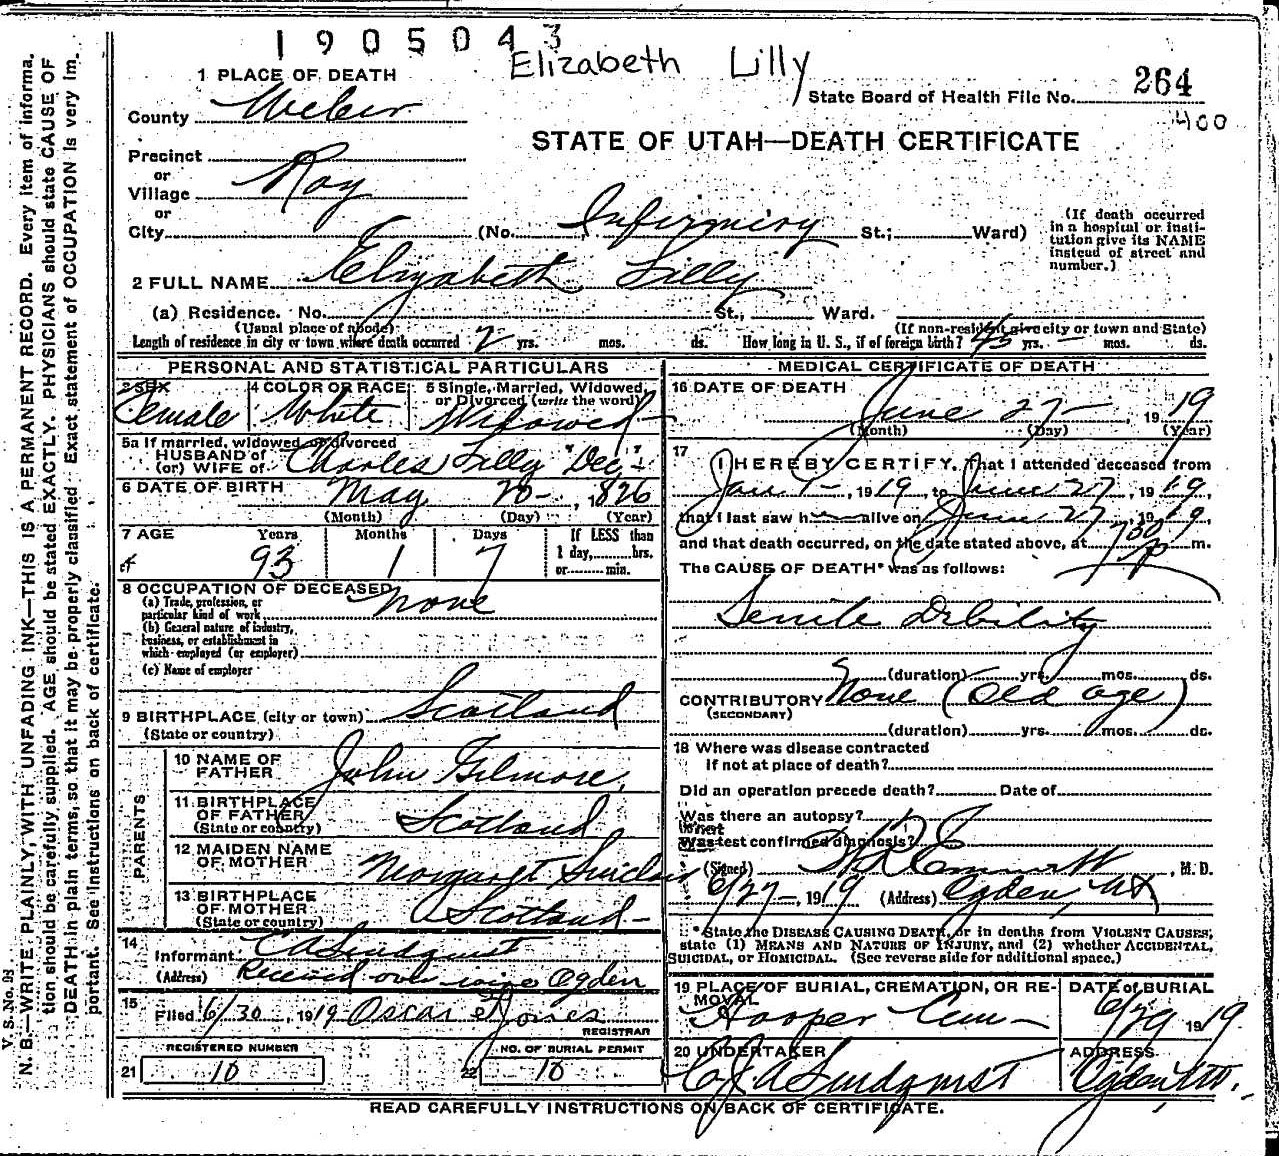 1905043
Elizabeth Lilly
1 PLACE OF DEATH
State Board of Health File No. 264
400
County Weber
STATE OF UTAH—DEATH CERTIFICATE
Precinct
or
Village Roy
or
City (No. Infirmiry St.; Ward)
(If death occurred in a hospital or institution give its NAME instead of street and number.)
2 FULL NAME Elizabeth Lilly
(a) Residence. No. St., Ward.
(Usual place of abode) (If non-resident give city or town and State)
Length of residence in city or town where death occurred 2 yrs. mos. ds. How long in U. S., if of foreign birth? 45 yrs. — mos. ds.
PERSONAL AND STATISTICAL PARTICULARS
3 SEX Female
4 COLOR OR RACE White
5 Single, Married, Widowed, or Divorced (write the word) Widowed
5a If married, widowed or divorced
HUSBAND of
(or) WIFE of Charles Lilly "Dec"
6 DATE OF BIRTH May 20 -, 1826
(Month) (Day) (Year)
7 AGE Years Months Days If LESS than
1 day, hrs.
or min.
93 1 7
8 OCCUPATION OF DECEASED none
(a) Trade, profession, or
particular kind of work
(b) General nature of industry,
business, or establishment in
which employed (or employer)
(c) Name of employer
9 BIRTHPLACE (city or town) Scotland
(State or country)
PARENTS
10 NAME OF FATHER John Gilmore,
11 BIRTHPLACE OF FATHER (State or country) Scotland
12 MAIDEN NAME OF MOTHER Margaret Sinclair
13 BIRTHPLACE OF MOTHER (State or country) Scotland —
14
Informant C A Lindquist
(Address) Received over Ogden
15
Filed 6/30, 1919 Oscar Jones
REGISTRAR
REGISTERED NUMBER
21 10
NO. OF BURIAL PERMIT
22 10
MEDICAL CERTIFICATE OF DEATH
16 DATE OF DEATH June 27 —, 1919
(Month) (Day) (Year)
17
I HEREBY CERTIFY, That I attended deceased from
Jan 1 -, 1919, to June 27, 1919,
that I last saw h— alive on June 27, 1919,
and that death occurred, on the date stated above, at 7 30 P m.
The CAUSE OF DEATH* was as follows:
Senile Debility
(duration) yrs. mos. ds.
CONTRIBUTORY None (Old age)
(SECONDARY)
(duration) yrs. mos. ds.
18 Where was disease contracted
if not at place of death?
Did an operation precede death? Date of
Was there an autopsy?
What test confirmed diagnosis?
(Signed) Emmett, M. D.
6/27 -, 1919 (Address) Ogden, Ut
*State the DISEASE CAUSING DEATH, or in deaths from VIOLENT CAUSES,
state (1) MEANS AND NATURE OF INJURY, and (2) whether ACCIDENTAL,
SUICIDAL, or HOMICIDAL. (See reverse side for additional space.)
19 PLACE OF BURIAL, CREMATION, OR REMOVAL Hooper Cem —
DATE of BURIAL 6/29 1919.
20 UNDERTAKER C. J. A Lindquist
ADDRESS Ogden Ut.
READ CAREFULLY INSTRUCTIONS ON BACK OF CERTIFICATE.
V. S. No. B3
N. B.—WRITE PLAINLY, WITH UNFADING INK—THIS IS A PERMANENT RECORD. Every item of informa-
tion should be carefully supplied. AGE should be stated EXACTLY. PHYSICIANS should state CAUSE OF
DEATH in plain terms, so that it may be properly classified. Exact statement of OCCUPATION is very im-
portant. See instructions on back of certificate.